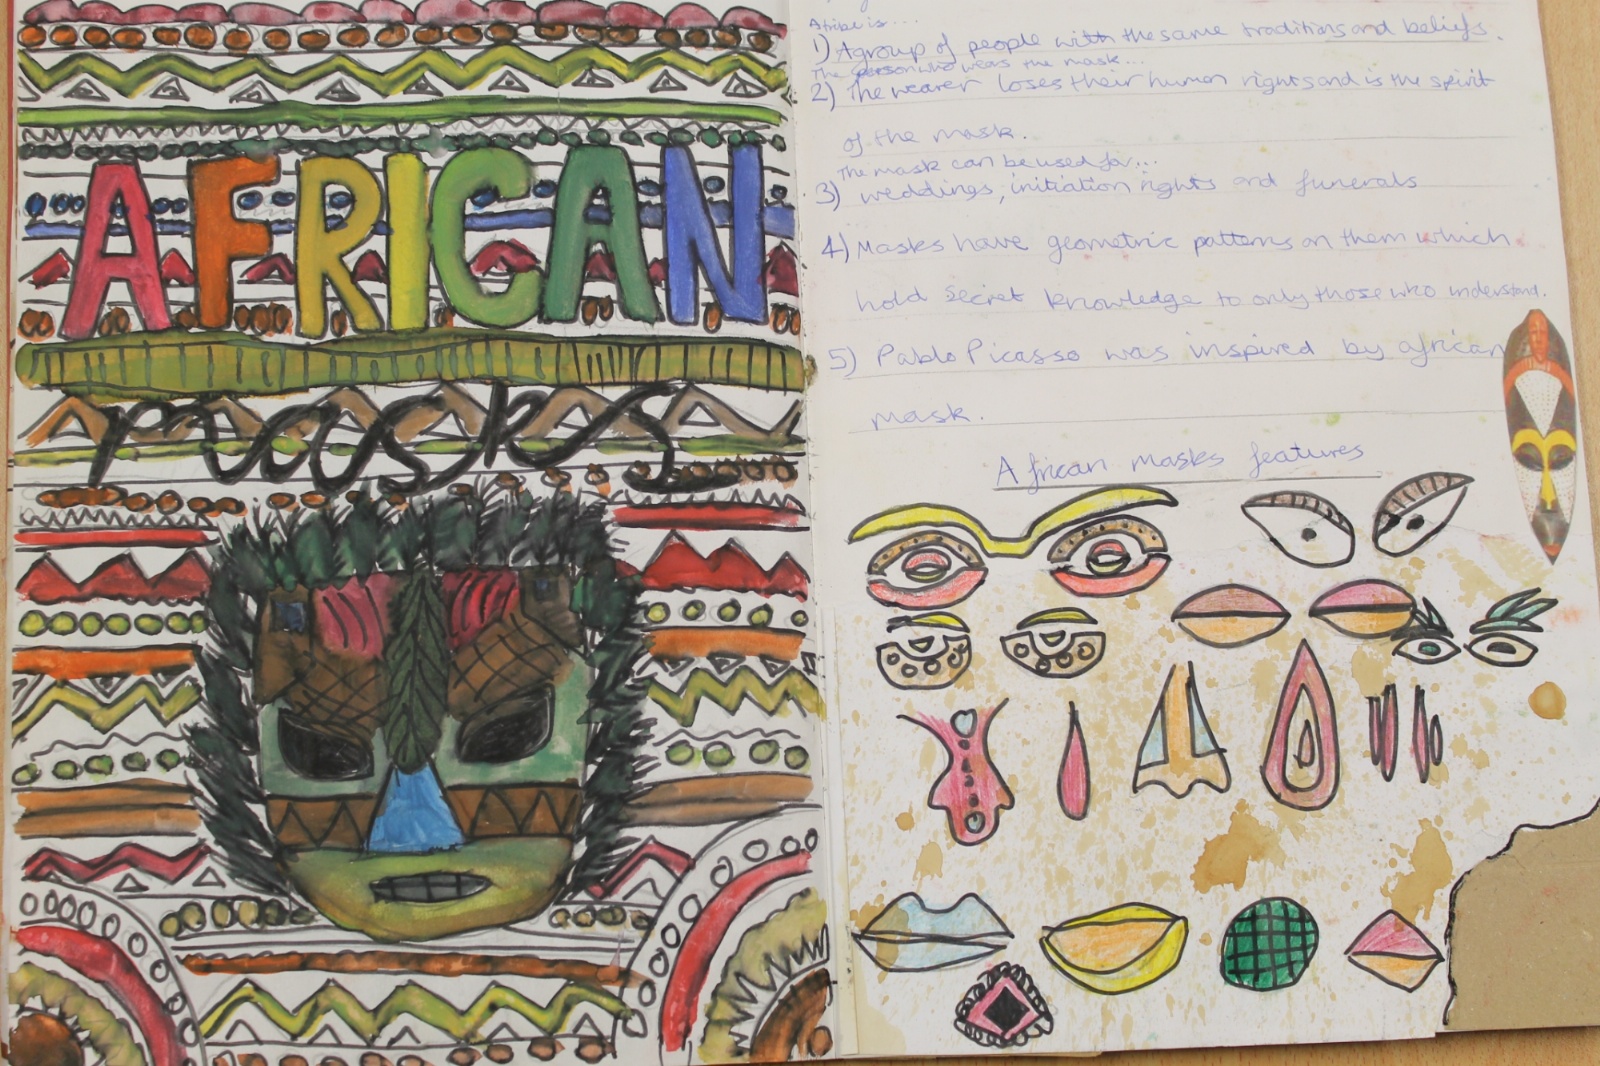 AFRICAN
masks
A tribe is...
1) A group of people with the same traditions and beliefs.
The person who wears the mask...
2) The wearer loses their human rights and is the spirit
of the mask.
The mask can be used for...
3) weddings, initiation rights and funerals
4) Masks have geometric patterns on them which
hold secret knowledge to only those who understand.
5) Pablo Picasso was inspired by african
mask.
African masks features